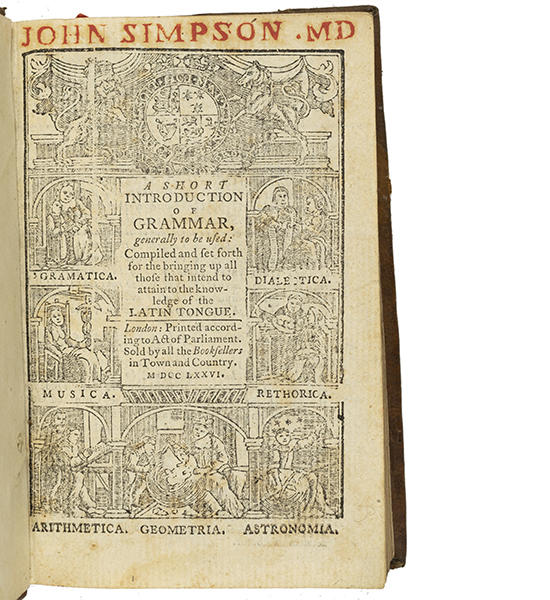 JOHN SIMPSON .MD
A SHORT
INTRODUCTION
OF
GRAMMAR,
generally to be used:
Compiled and set forth
for the bringing up all
those that intend to
attain to the know-
ledge of the
LATIN TONGUE.
London: Printed accord-
ing to Act of Parliament.
Sold by all the Booksellers
in Town and Country.
M DCC LXXVI.
GRAMATICA.
DIALECTICA.
MUSICA.
RETHORICA.
ARITHMETICA. GEOMETRIA. ASTRONOMIA.